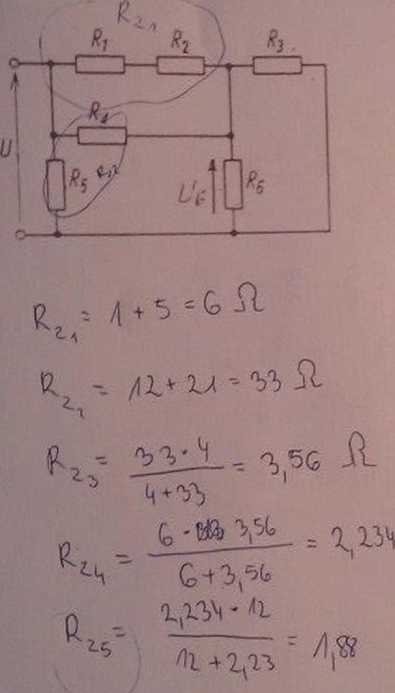 R21
R1 R2 R3
R4
U R5 R22 U6 R6
R21 = 1 + 5 = 6 Ω
R22 = 12 + 21 = 33 Ω
R23 = 33 · 4 / 4 + 33 = 3,56 Ω
R24 = 6 · 3,56 / 6 + 3,56 = 2,234
R25 = 2,234 · 12 / 12 + 2,23 = 1,88